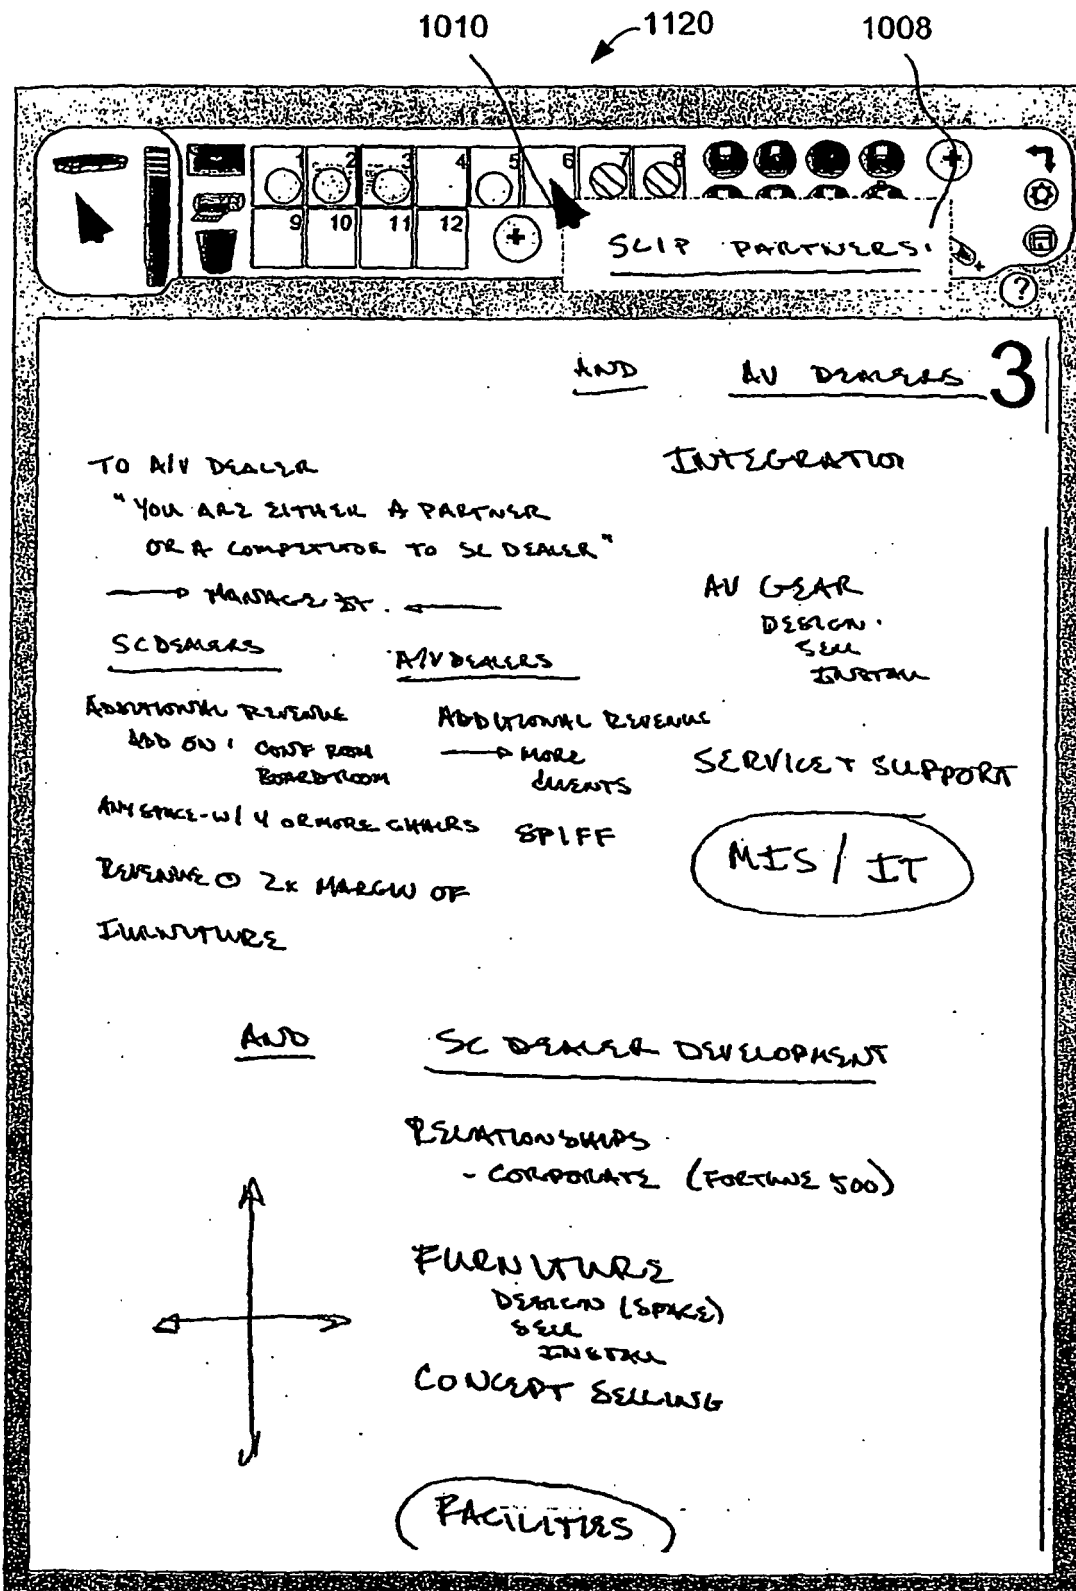 1010 1120 1008
1 2 3 4 5 6 7 8
9 10 11 12
SCIP PARTNERS.
?
AND AV DEALERS 3
TO A/V DEALER
INTEGRATION
"YOU ARE EITHER A PARTNER
OR A COMPETITOR TO SC DEALER"
MANAGE IT.
AV GEAR
DESIGN.
SELL
INSTALL
SC DEALERS
A/V DEALERS
ADDITIONAL REVENUE
ADD ON: CONF ROOM
BOARDROOM
ADDITIONAL REVENUE
MORE
CLIENTS
SERVICE + SUPPORT
ANY SPACE - W/ 4 OR MORE CHAIRS
SPIFF
MIS / IT
REVENUE @ 2x MARGIN OF
FURNITURE
AND SC DEALER DEVELOPMENT
RELATIONSHIPS
- CORPORATE (FORTUNE 500)
FURNITURE
DESIGN (SPACE)
SELL
INSTALL
CONCEPT SELLING
FACILITIES